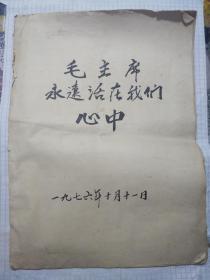 毛主席
永远活在我们
心中
一九七六年十月十一日